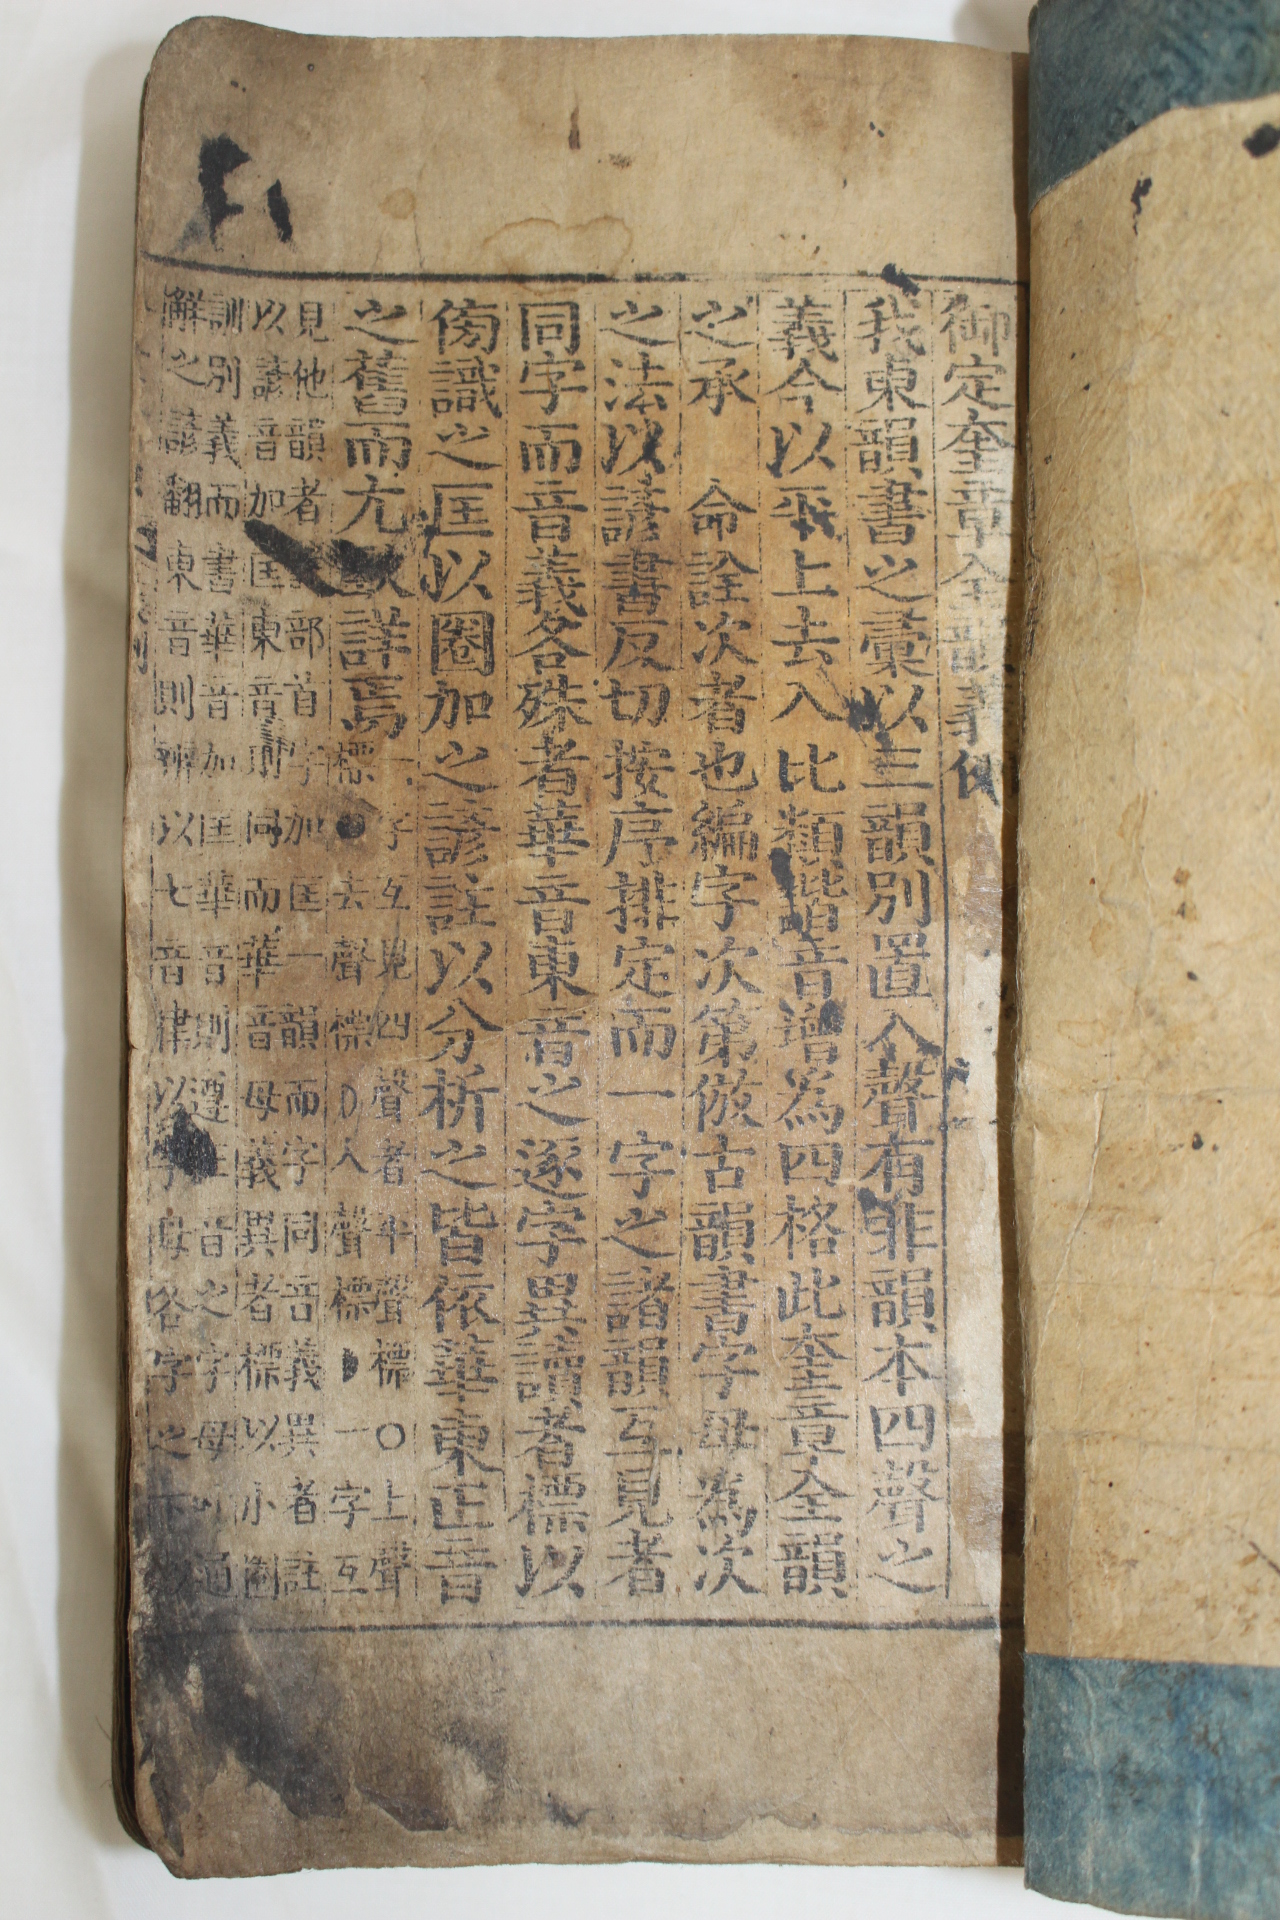 御定奎章全韻義例
我東韻書之彙以三韻別置入聲有非韻本四聲之
義今以平上去入比類諧音增為四格此奎章全韻
之承 命詮次者也編字次第倣古韻書字母為次
之法以諺書反切按序排定而一字之諸韻互見者
同字而音義各殊者華音東音之逐字異讀者標以
傍識之匡以圈加之諺註以分析之皆依華東正音
之舊而尤致詳焉
一字互見四聲者平聲標○上聲
標●去聲標◑入聲標◗一字互
見他韻者部首字加匡一韻而字同音義異者註
以諺音加匡東音則同而華音母義異者標以小圈
訓別義而書華音加匡華音則遵正音之字母以通
解之諺翻東音則辨以七音律以字母各字之下